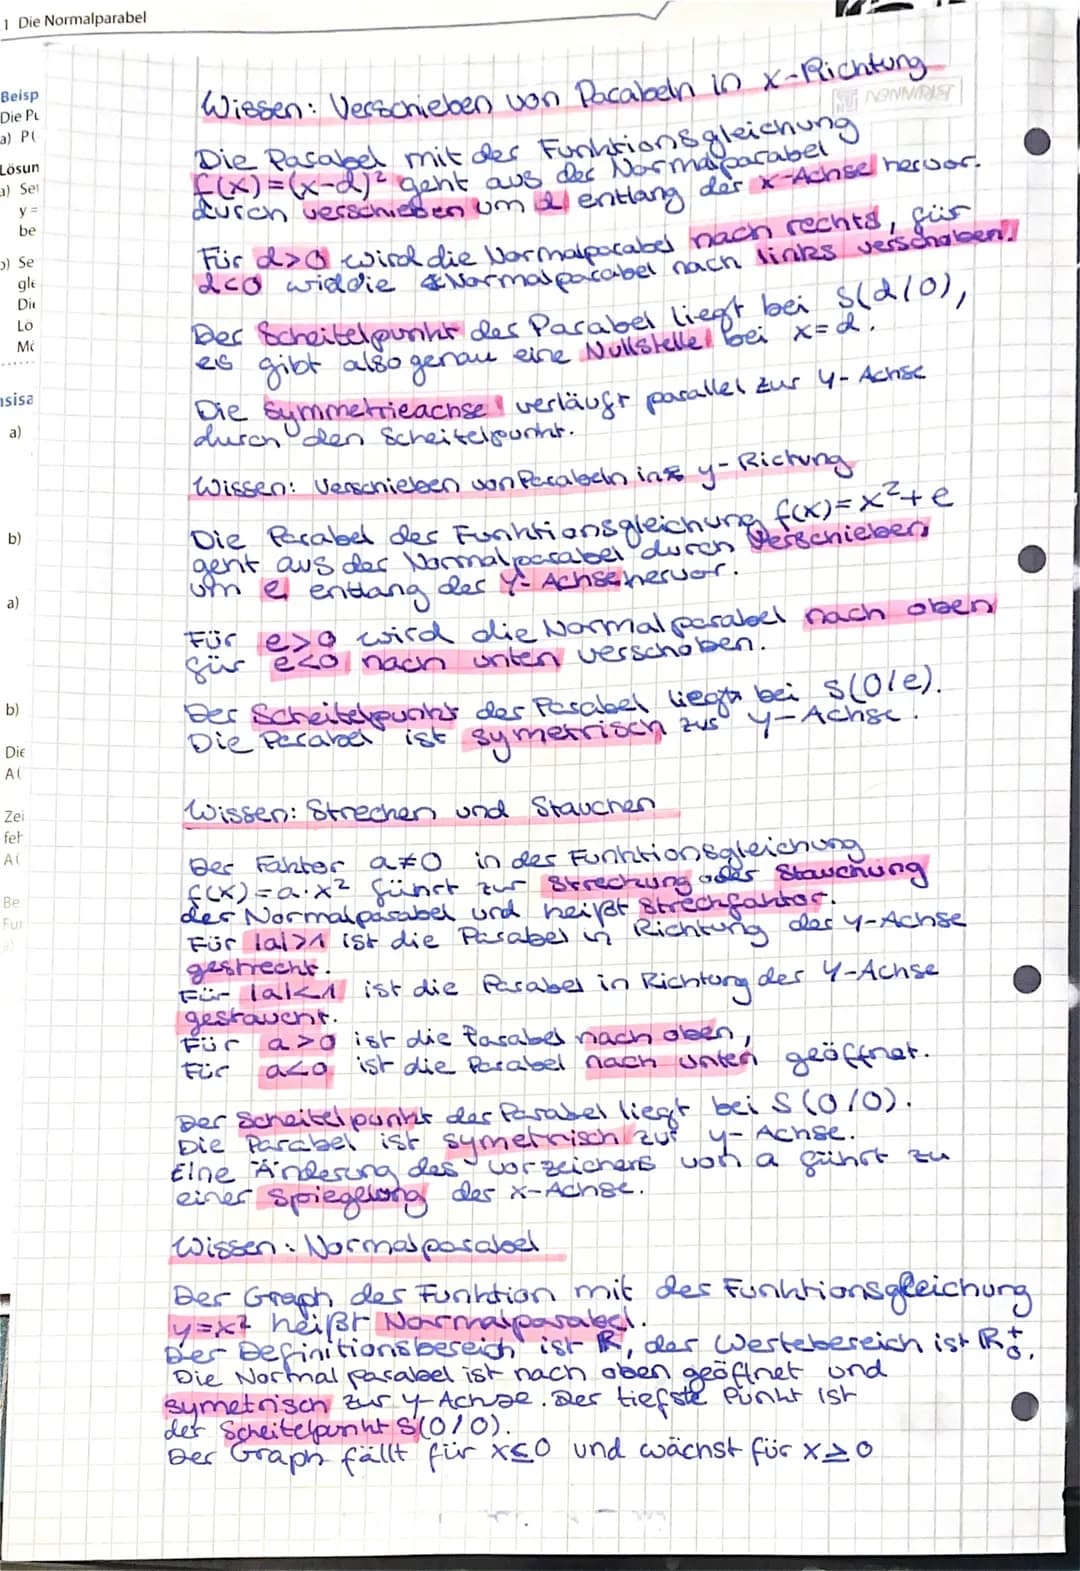 1 Die Normalparabel
Beisp
Die Pu
a) P(
Lösun
a) Set
y =
be
b) Se
gle
Die
Lö
Mc
nsisa
a)
b)
a)
b)
Die
A(
Zei
feh
A(
Be
Fur
a)
Wissen: Verschieben von Parabeln in x-Richtung
Die Parabel mit der Funktionsgleichung
f(x)=(x-d)² geht aus der Normalparabel
durch verschieben um d entlang der x-Achse hervor.
Für d>0 wird die Normalparabel nach rechts, für
d<0 wid die Normalparabel nach links verschoben!
Der Scheitelpunkt der Parabel liegt bei S(d/0),
es gibt also genau eine Nullstelle bei x=d.
Die Symmetrieachse verläuft parallel zur y-Achse
durch den Scheitelpunkt.
Wissen: Verschieben von Parabeln in y-Richtung
Die Parabel der Funktionsgleichung f(x)=x²+e
geht aus der Normalparabel durch Verschieben
um e entlang der y-Achse hervor.
Für e>0 wird die Normalparabel nach oben
für e<0 nach unten verschoben.
Der Scheitelpunkt der Parabel liegt bei S(0/e).
Die Parabel ist symetrisch zur y-Achse.
Wissen: Strechen und Stauchen
Der Faktor a≠0 in der Funktionsgleichung
f(x)=a·x² führt zur Streckung oder Stauchung
der Normalparabel und heißt Streckfaktor.
Für |a|>1 ist die Parabel in Richtung der y-Achse
gestreckt.
Für |a|<1 ist die Parabel in Richtung der y-Achse
gestaucht.
Für a>0 ist die Parabel nach oben,
Für a<0 ist die Parabel nach unten geöffnet.
Der Scheitelpunkt der Parabel liegt bei S(0/0).
Die Parabel ist symetrisch zur y-Achse.
Eine Änderung des Vorzeichens von a führt zu
einer Spiegelung der x-Achse.
Wissen: Normalparabel
Der Graph der Funktion mit der Funktionsgleichung
y=x² heißt Normalparabel.
Der Definitionsbereich ist ℝ, der Wertebereich ist ℝ₀⁺.
Die Normalparabel ist nach oben geöffnet und
symetrisch zur y-Achse. Der tiefste Punkt ist
der Scheitelpunkt S(0/0).
Der Graph fällt für x≤0 und wächst für x≥0